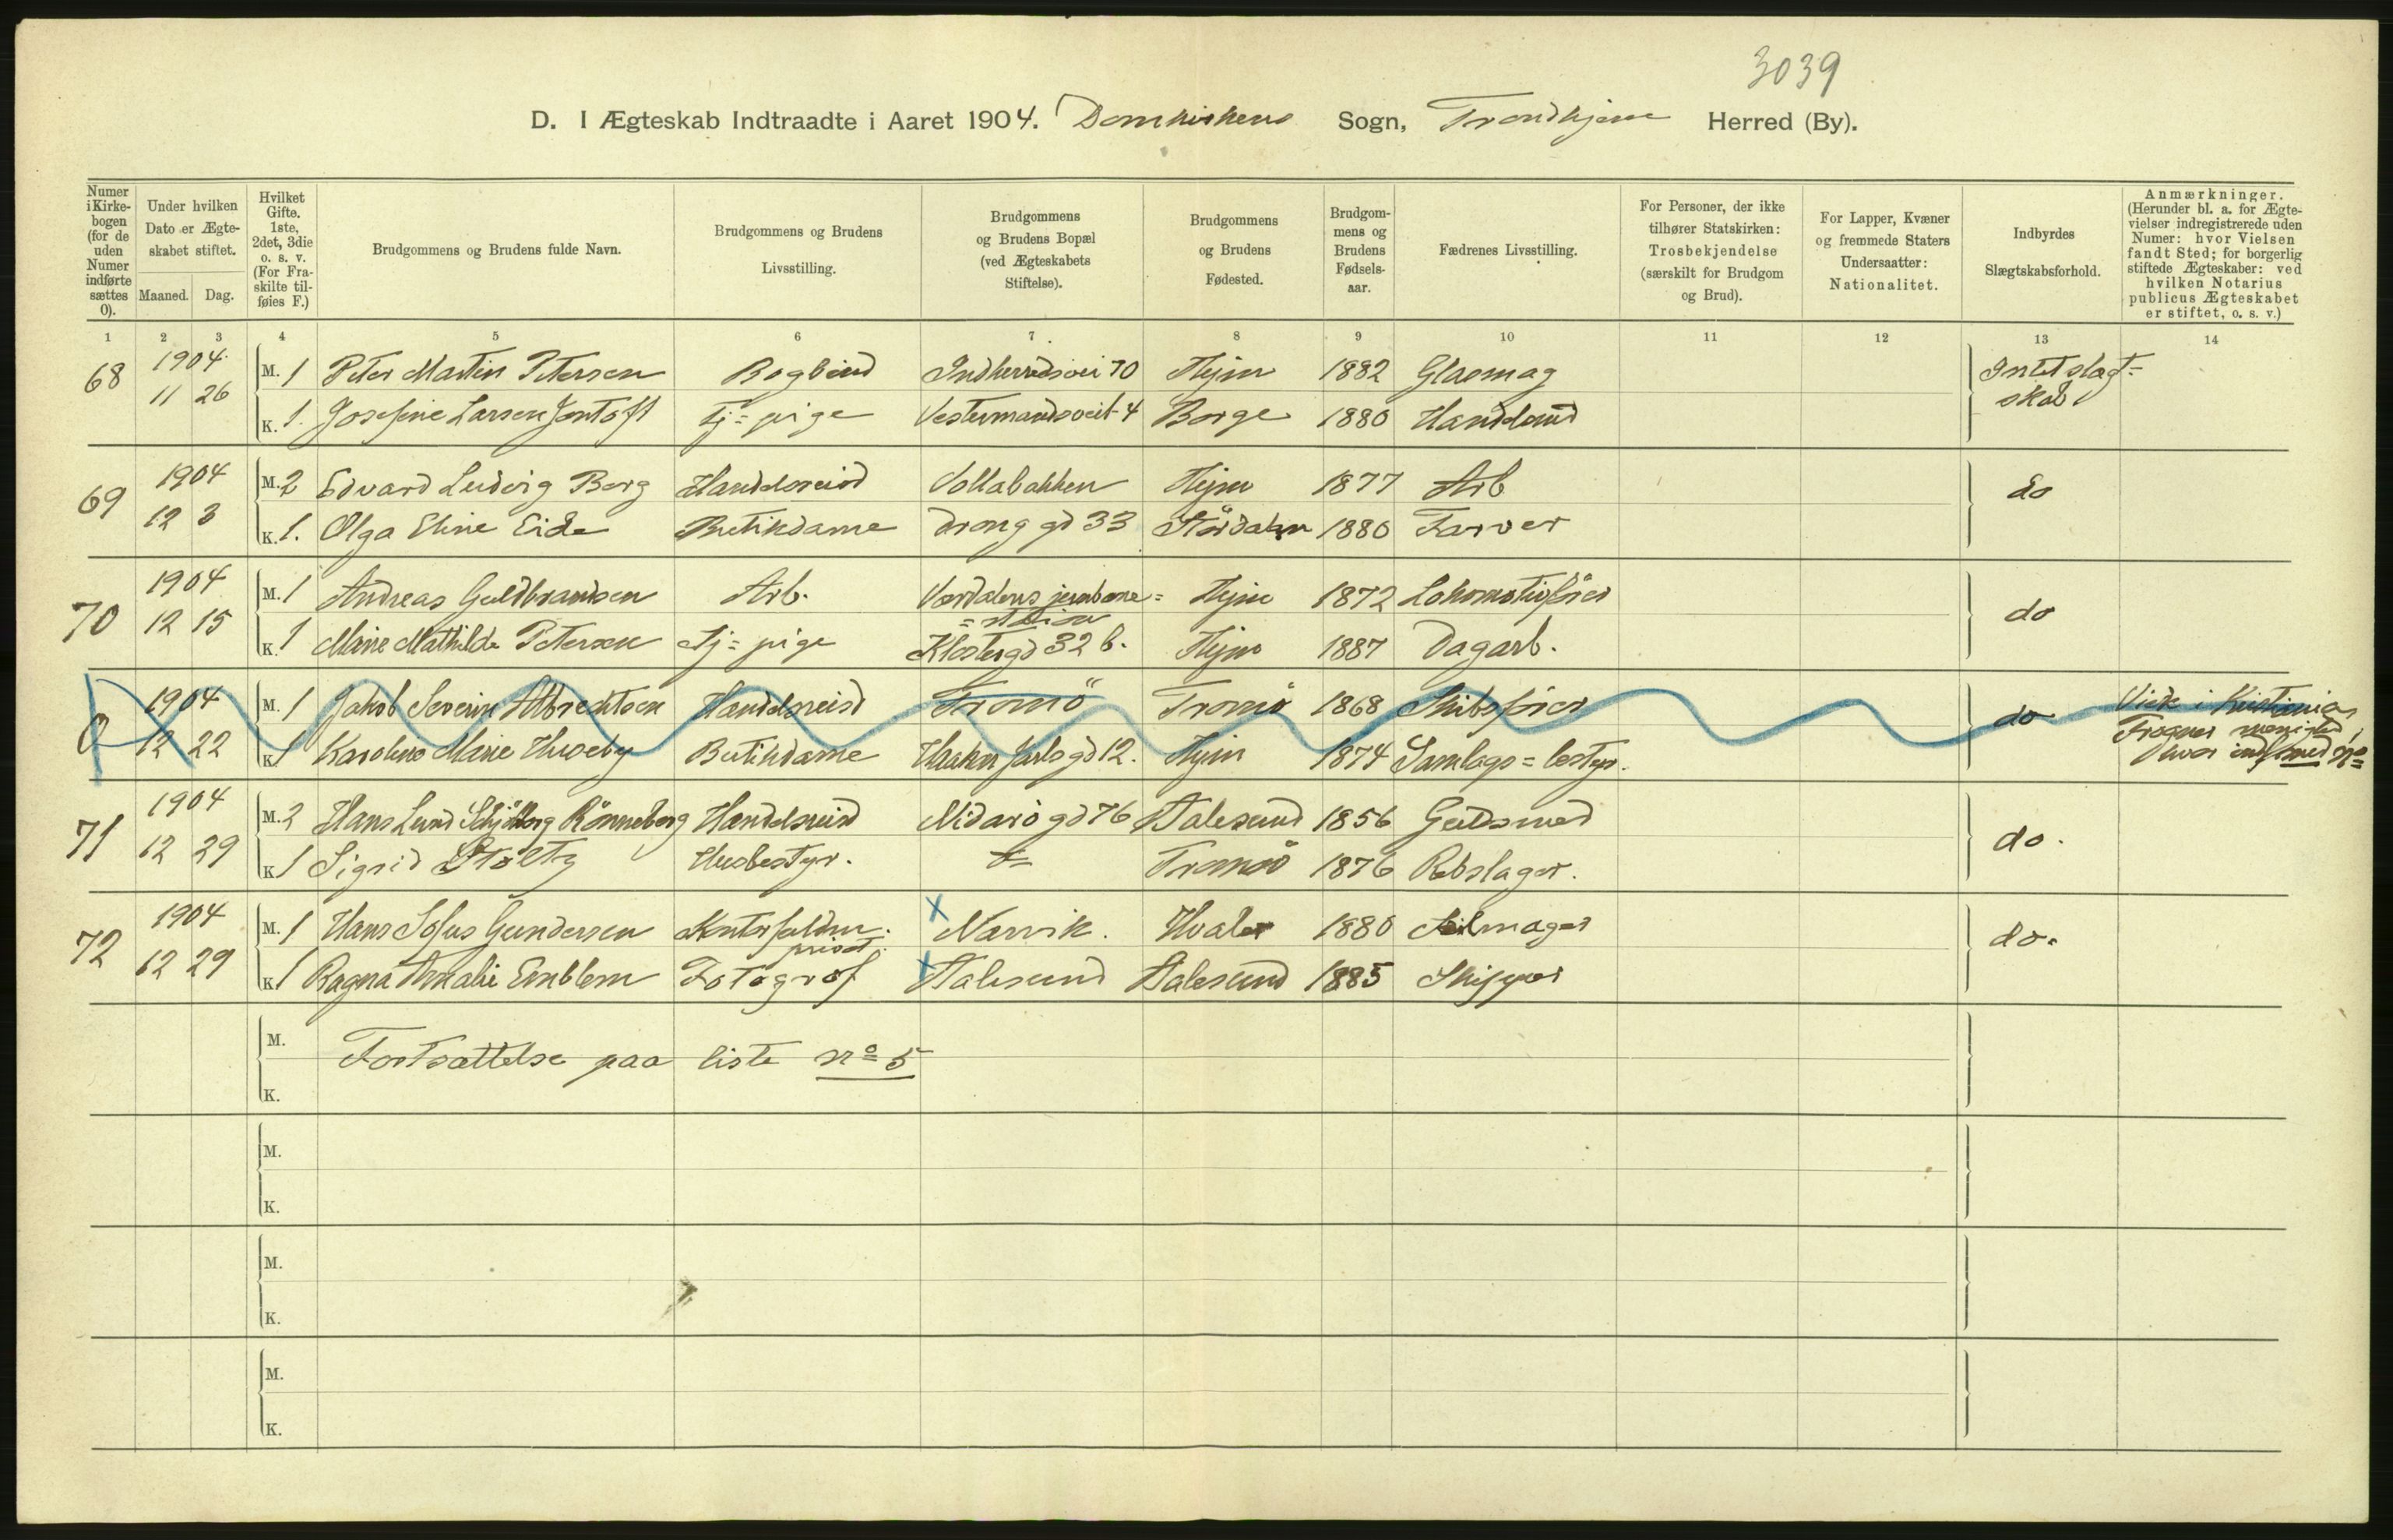 3039
D. I Ægteskab Indtraadte i Aaret 1904. Domkirkens Sogn, Trondhjem Herred (By).
Numer i Kirke-bogen (for de uden Numer indførte sættes 0).
Under hvilken Dato er Ægte-skabet stiftet.
Maaned. Dag.
Hvilket Gifte. 1ste, 2det, 3die o. s. v. (For Fra-skilte til-føies F.)
Brudgommens og Brudens fulde Navn.
Brudgommens og Brudens Livsstilling.
Brudgommens og Brudens Bopæl (ved Ægteskabets Stiftelse).
Brudgommens og Brudens Fødested.
Brudgom-mens og Brudens Fødsels-aar.
Fædrenes Livsstilling.
For Personer, der ikke tilhører Statskirken: Trosbekjendelse (særskilt for Brudgom og Brud).
For Lapper, Kvæner og fremmede Staters Undersaatter: Nationalitet.
Indbyrdes Slægtskabsforhold.
Anmærkninger. (Herunder bl. a. for Ægte-vielser indregistrerede uden Numer: hvor Vielsen fandt Sted; for borgerlig stiftede Ægteskaber: ved hvilken Notarius publicus Ægteskabet er stiftet, o. s. v.)
1 2 3 4 5 6 7 8 9 10 11 12 13 14
68 1904 M. 1 Peter Martin Petersen Bogbind Indherredsvei 70 Thjm 1882 Glasmag Intet slægt=
11 26 K. 1. Josefine Larsen Jentoft Tj=pige Vestermandsveit 4 Borge 1880 Handelsmd skab
69 1904 M. 2 Edvard Ludvig Berg Handelsreisd Vollabakken Thjm 1877 Arb do
12 3 K. 1. Olga Eline Eide Butikdame Drong gd 33 Størdalen 1880 Farver
70 1904 M. 1 Andreas Guldbrandsen Arb. Værdalens jernbane= Thjm 1872 Lokomotivfører do
=station
12 15 K. 1 Marie Mathilde Petersen Tj=pige Klostergd 32 b. Thjm 1887 Dagarb.
0 1904 M. 1 Jakob Severin Albrechtsen Handelsreisd Tromsö Tromsö 1868 Skibsfører do Viede i Kristiania,
12 22 K. 1 Karoline Marie Huseby Butikdame Haakon Jarls gd 12. Thjm 1874 Samlags=bestyr. Frogner menighed, hvor indf med No
71 1904 M. 2 Hans Lund Schjölberg Rönneberg Handelsreisd Nidarö gd 76 Aalesund 1856 Guldsmed do.
12 29 K. 1 Sigrid Stoltz Husbestyr. do Tromsö 1876 Rebslager.
72 1904 M. 1 Hans Sofus Gundersen Kontorfuldm. privat. Narvik. Hvaler 1880 Seilmager do.
12 29 K. 1 Ragna Amalie Emblem Fotograf Aalesund Aalesund 1885 Skipper
M. Fortsættelse paa liste No 5
K.
M.
K.
M.
K.
M.
K.